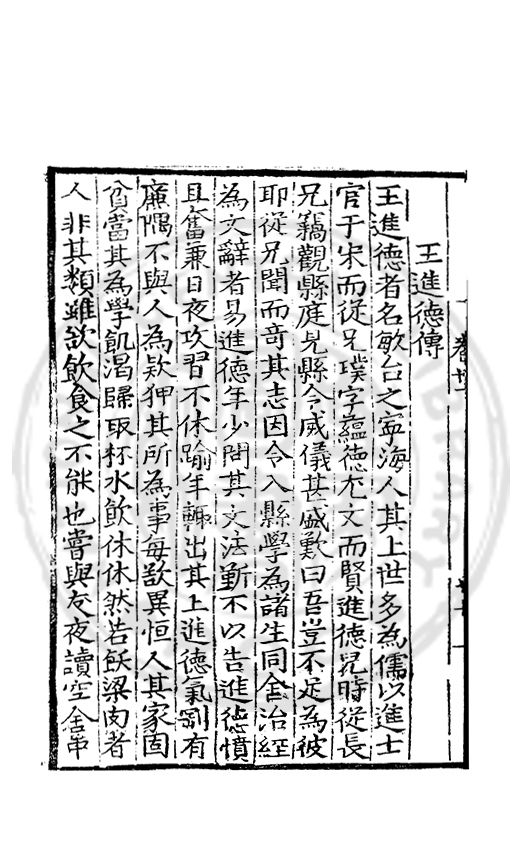 王進德傳
王進德者名敏台之寧海人其上世多為儒以進士
官于宋而從兄璞字蘊德尤文而賢進德兒時從長
兄竊觀縣庭見縣令威儀甚盛歎曰吾豈不足為彼
耶從兄聞而奇其志因令入縣學為諸生同舍治經
為文辭者易進德年少問其文法靳不以告進德憤
且奮兼日夜攻習不休踰年輒出其上進德氣剛有
廉隅不與人為款狎其所為事每欲異恒人其家固
貧當其為學飢渴歸取杯水飲休休然若飫粱肉者
人非其類雖欲飲食之不能也嘗與友夜讀空舍中